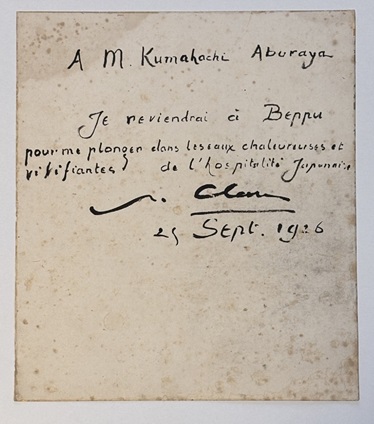 A M. Kumahachi Aburaya
Je reviendrai à Beppu
pour me plonger dans les eaux chaleureuses et
vivifiantes de l'hospitalité Japonaise
Sept. 1926